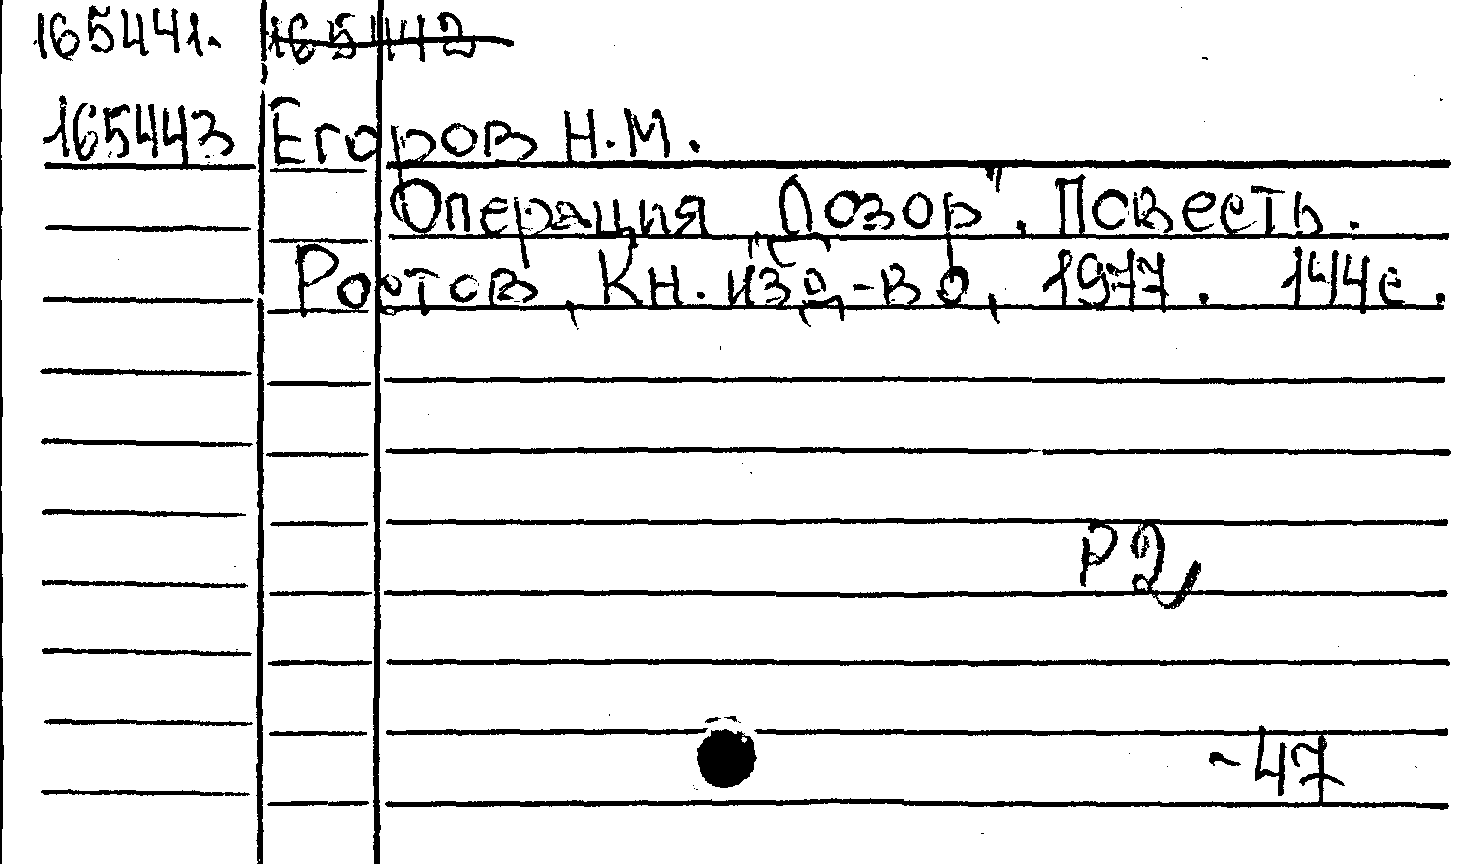 165441. 165442
165443 Егоров Н.М.
Операция „Дозор". Повесть.
Ростов, Кн. изд-во, 1977. 144с.
Р2
-47